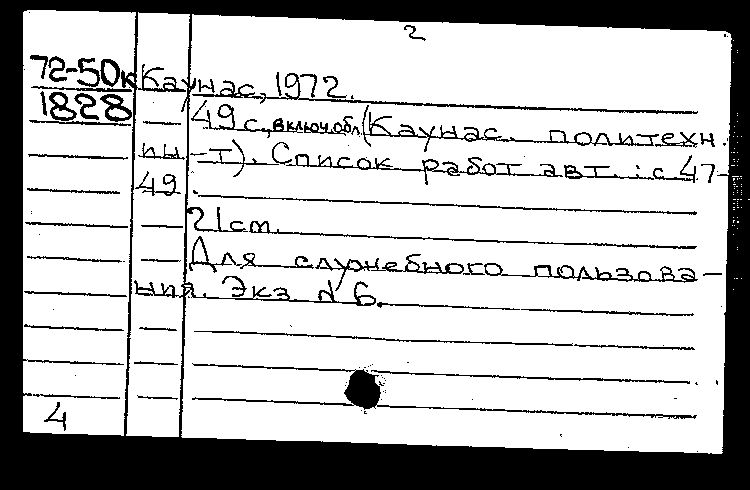 2
72-50к Каунас, 1972.
1828 49 с., включ. обл. (Каунас. политехн.
ин-т). Список работ авт.: с 47-
49.
21 см.
Для служебного пользова-
ния. Экз № 6.
4